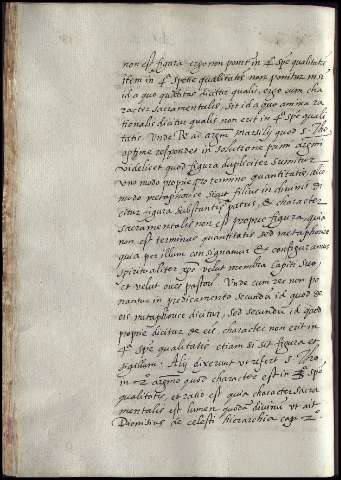 non est figura ergo non ponit in 4ª spē qualitatis
item in 4ª spetie qualitatis non ponitur nisi
id a quo qualitas dicitur qualis, ergo cum cha
racter sacramentalis, sit id a quo anima ra
tionalis dicitur qualis non erit in 4ª spē quali
tatis Unde ad argm Marsilij quod S. Tho
optime respondet in solutione primi argmi
videlicet quod figura dupliciter sumitur
uno modo proprie pro termino quantitatis, alio
modo metaphorice sicut filius in divinis di
citur figura substantiæ patris, et character
sacramentalis non est proprie figura, quia
non est terminus quantitatis sed metaphorice
quia per illum consignamur & configuramur
spiritualiter xpo velut membra capiti suo
et velut oves pastori. Unde cum res non po
nantur in predicamento secundū id quod de
eis metaphorice dicitur, sed secundū id quod
proprie dicitur de eis, character non erit in
4ª spē qualitatis etiam si sit figura et
sigillum. Alij dixerunt ut refert S. Tho
in 2º argmo quod character est in spē
qualitatis, et ratio est quia character sacra
mentalis est lumen quodā divinū ut ait
Dionisius de celesti hierarchia cap 2º